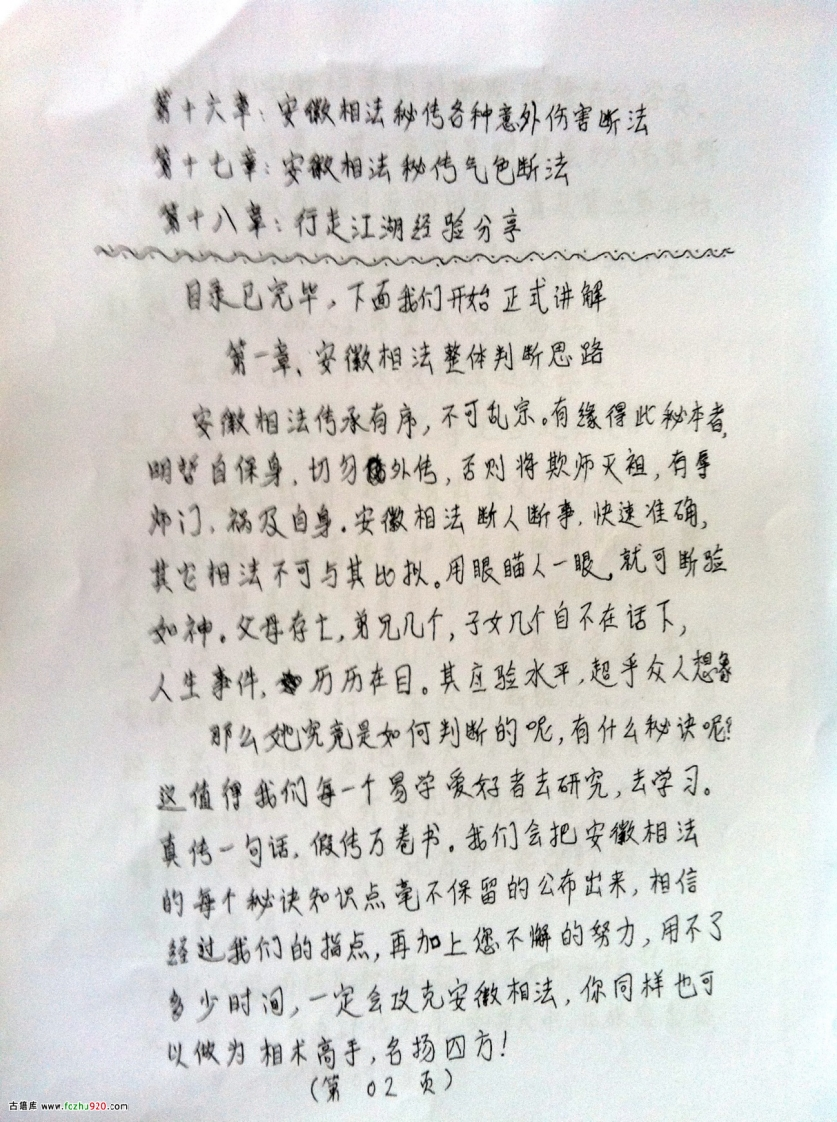 第十六章：安徽相法秘传各种意外伤害断法
第十七章：安徽相法秘传气色断法
第十八章：行走江湖经验分享
目录已完毕，下面我们开始正式讲解
第一章、安徽相法整体判断思路
安徽相法传承有序，不可乱宗。有缘得此秘本者，
明哲自保身，切勿外传，否则将欺师灭祖，有辱
师门，祸及自身。安徽相法断人断事，快速准确，
其它相法不可与其比拟。用眼瞄人一眼。就可断验
如神。父母存亡，弟兄几个，子女几个自不在话下，
人生事件，历历在目。其应验水平，超乎众人想象
那么她究竟是如何判断的呢，有什么秘诀呢？
这值得我们每一个易学爱好者去研究，去学习。
真传一句话，假传万卷书。我们会把安徽相法
的每个秘诀知识点毫不保留的公布出来，相信
经过我们的指点，再加上您不懈的努力，用不了
多少时间，一定会攻克安徽相法，你同样也可
以做为相术高手，名扬四方！
（第02页）
古籍库 www.fczhu920.com